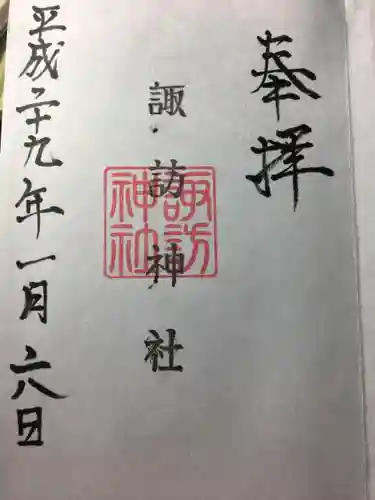 奉拝
諏訪神社
諏訪神社
平成二十九年一月二八日